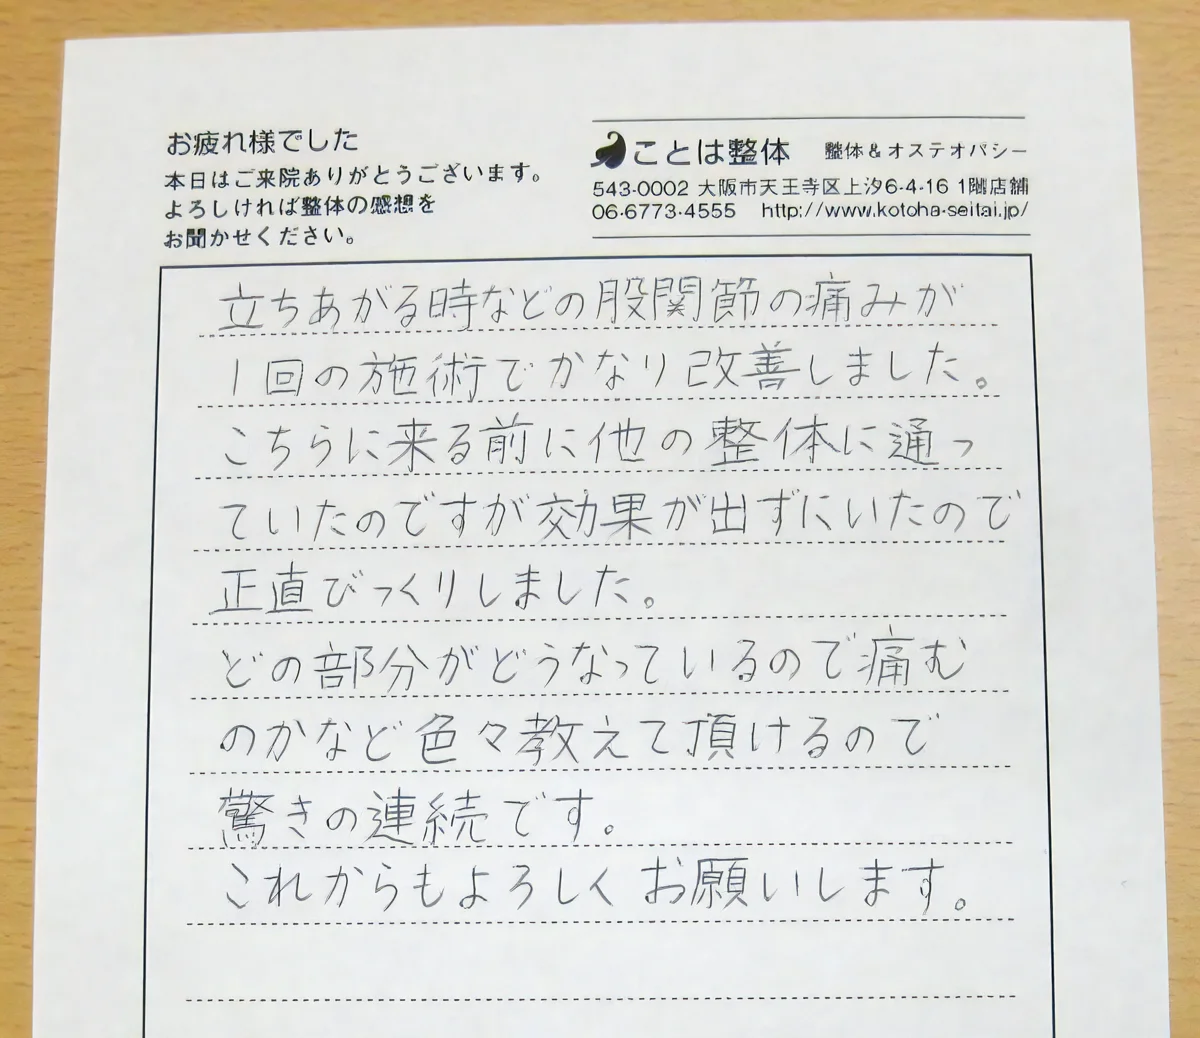 お疲れ様でした
本日はご来院ありがとうございます。
よろしければ整体の感想を
お聞かせください。
ことは整体 整体&オステオパシー
543-0002 大阪市天王寺区上汐6-4-16 1階店舗
06-6773-4555 http://www.kotoha-seitai.jp/
立ちあがる時などの股関節の痛みが
1回の施術でかなり改善しました。
こちらに来る前に他の整体に通っ
ていたのですが効果が出ずにいたので
正直びっくりしました。
どの部分がどうなっているので痛む
のかなど色々教えて頂けるので
驚きの連続です。
これからもよろしくお願いします。